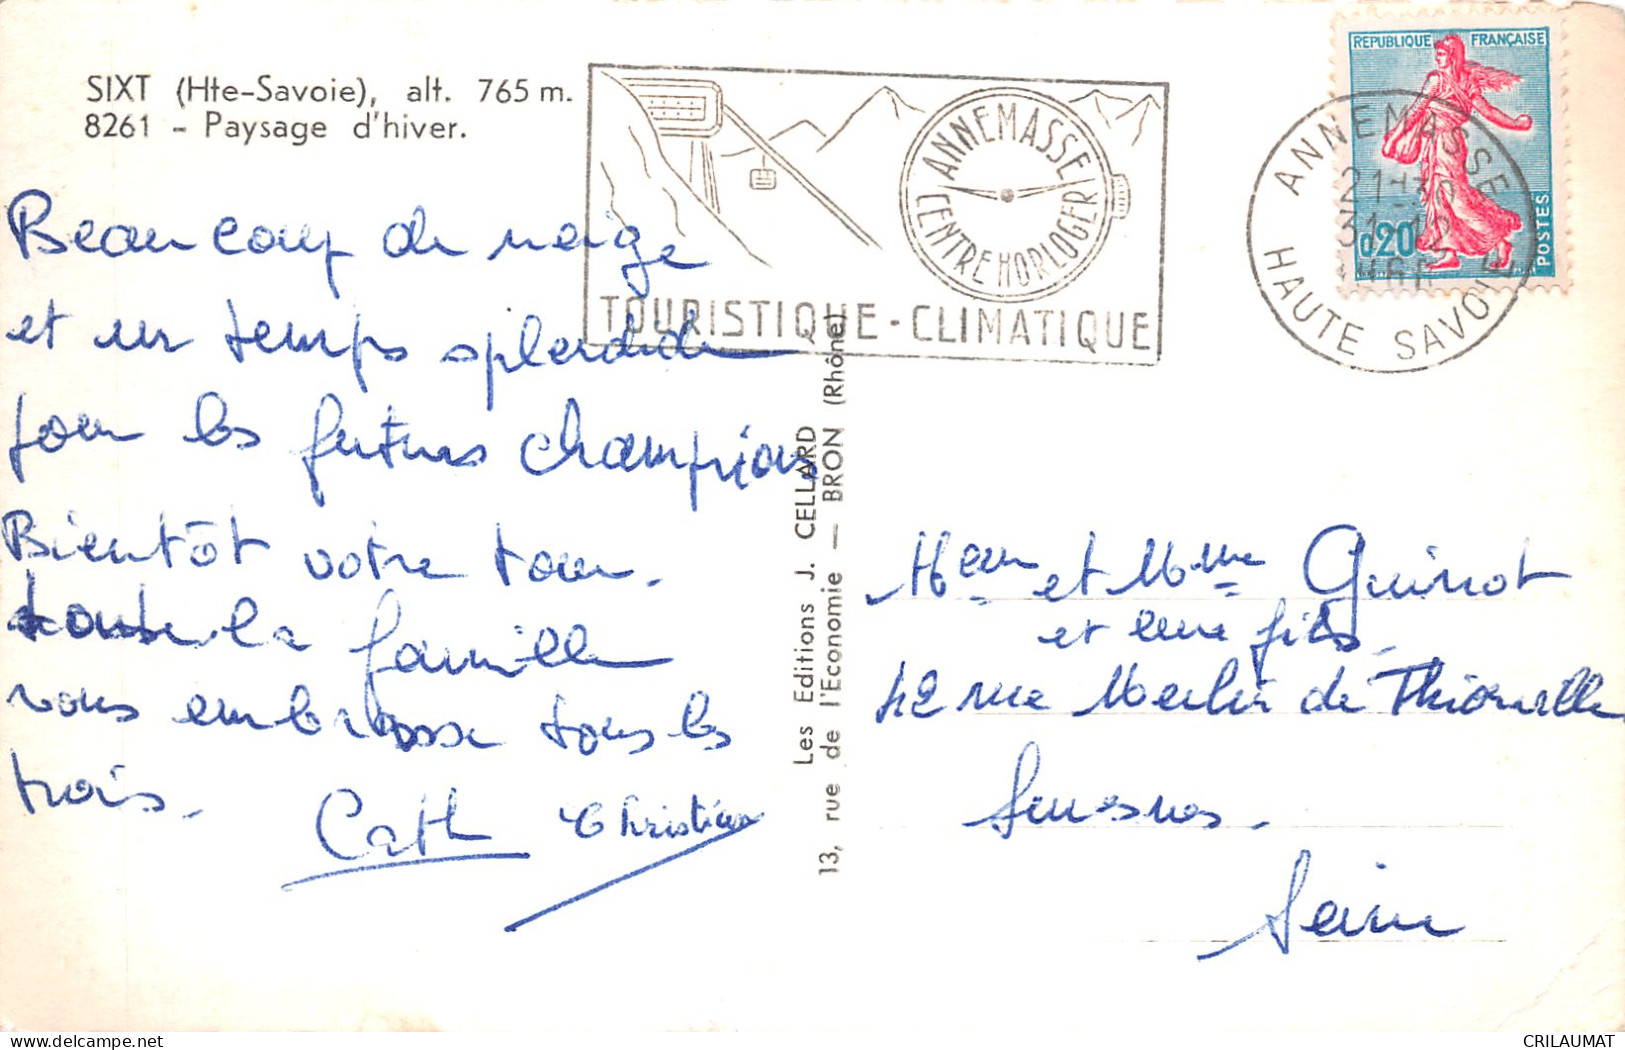 SIXT (Hte-Savoie), alt. 765 m.
8261 - Paysage d'hiver.
ANNEMASSE
CENTRE HORLOGER
TOURISTIQUE - CLIMATIQUE
REPUBLIQUE FRANÇAISE
0,20
POSTES
ANNEMASSE
21-30
31-12
HAUTE SAVOIE
Beaucoup de neige
et un temps splendide
pour les futurs champions
Bientôt votre tour.
toute la famille
vous embrasse tous les
trois.
Cath Christian
Les Editions J. CELLARD
13, rue de l'Economie — BRON (Rhône)
et Mme Guinot
et leur fils.
42 rue Merlin de Thionville
Suresnes.
Seine
CRILAUMAT